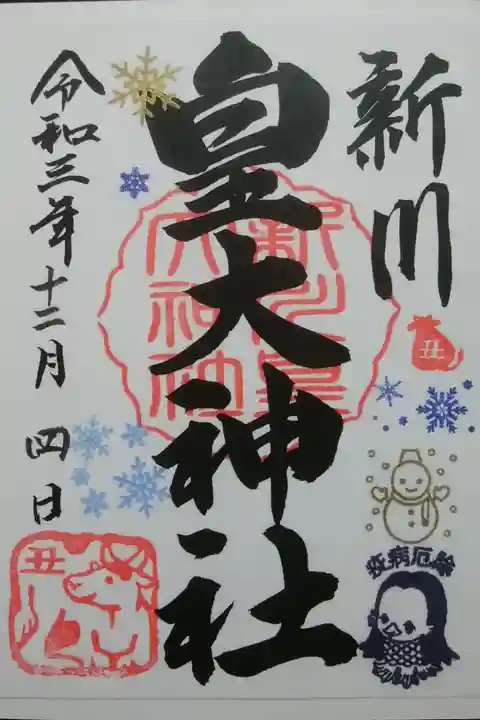 新川
皇大神社
令和三年十二月 四日
新川皇
大神社
丑
疫病厄除
丑